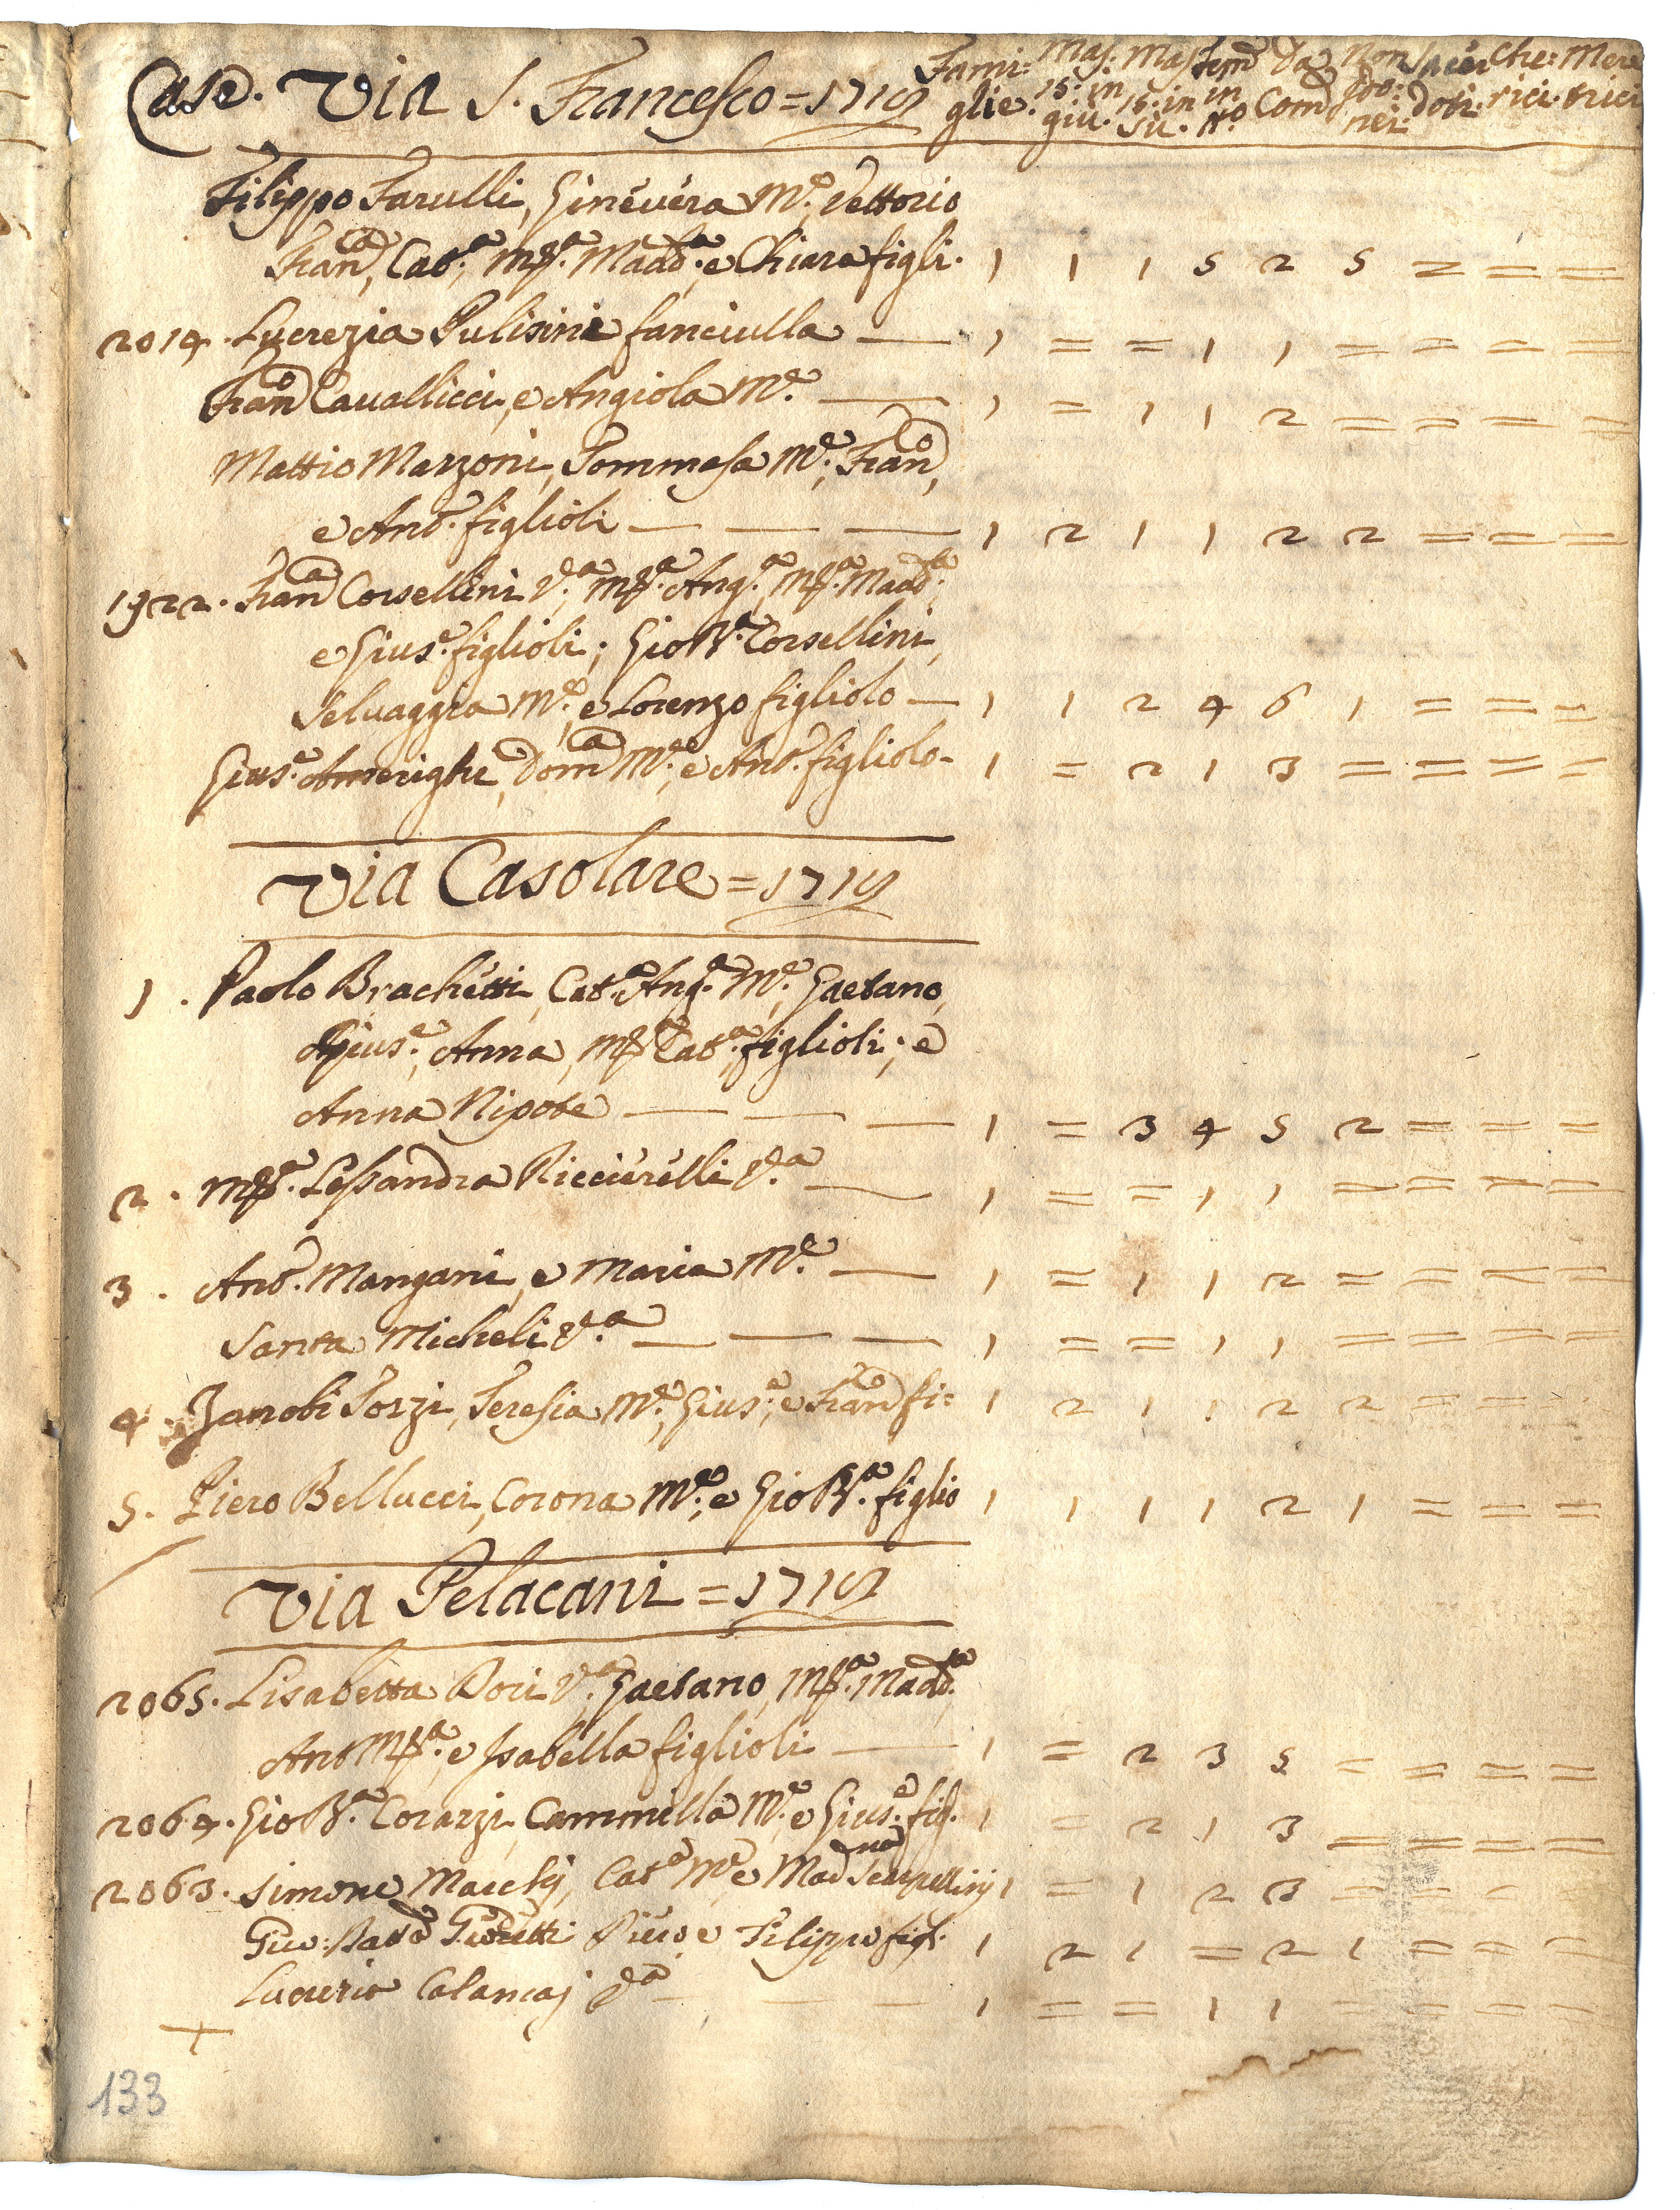 Case. Via S. Francesco = 1719 Fami: Mas: Mas: Fem̃ Da Non Sacer Che: Mere
glie. 15: in 15: in in Com̃ poo: doti. rici. trici
giù. sù. N.o nei:
Filippo Farulli, Ginevera M.e, Vettorio
Fran.ca, Cat.a, M.a Madd.a, e Chiara figli. 1 1 1 5 2 5 = = =
2014. Lucrezia Pulisini fanciulla — 1 = = 1 1 = = = =
Fran.co Cavallicci, e Angiola M.e — 1 = 1 1 2 = = = =
Mattio Marzoni, Tommasa M.e, Fran.co,
e Ant.o figlioli — — — 1 2 1 1 2 2 = = =
1922. Fran.ca Corsellini V.a, M.a Ang.a, M.a Madd.a,
e Gius.e figlioli; Gio B.a Corsellini,
Selvaggia M.e, e Lorenzo figliolo — 1 1 2 4 6 1 = = =
Gius.e Amerighi, Dom.ca M.e, e Ant.o figliolo - 1 = 2 1 3 = = = =
Via Casolare = 1719
1. Paolo Brachetti, Cat.a Ang.a M.e, Gaetano,
Gius.e, Anna, M.a Cat.a figlioli; e
Anna Nipote — — — 1 = 3 4 5 2 = = =
2. M.a Lessandra Riccierelli V.a — 1 = = 1 1 = = = =
3. Ant.o Mangani, e Maria M.e — 1 = 1 1 2 = = = =
Santa Micheli V.a — — — 1 = = 1 1 = = = =
4. Zanobi Tozzi, Teresia M.e, Gius.e, e Fran.co fi= 1 2 1 1 2 2 = = =
5. Piero Bellucci, Corona M.e, e Gio B.a figlio 1 1 1 1 2 1 = = =
Via Pelacani = 1719
2065. Lisabetta Dori V.a, Gaetano, M.a Madd.a
Ant M.a, e Isabella figlioli — 1 = 2 3 5 = = = =
2064. Gio B.a Corazzi, Cammilla M.e e Gius.e fig. 1 = 2 1 3 = = = =
2063. Simone Marchi, Cat.a M.e e Mad.na Scarpellinj 1 = 1 2 3 = = = =
Gio: Bat.a Piero e Filippo figli 1 2 1 = 2 1 = = =
V.a — — — 1 = = 1 1 = = = =
133